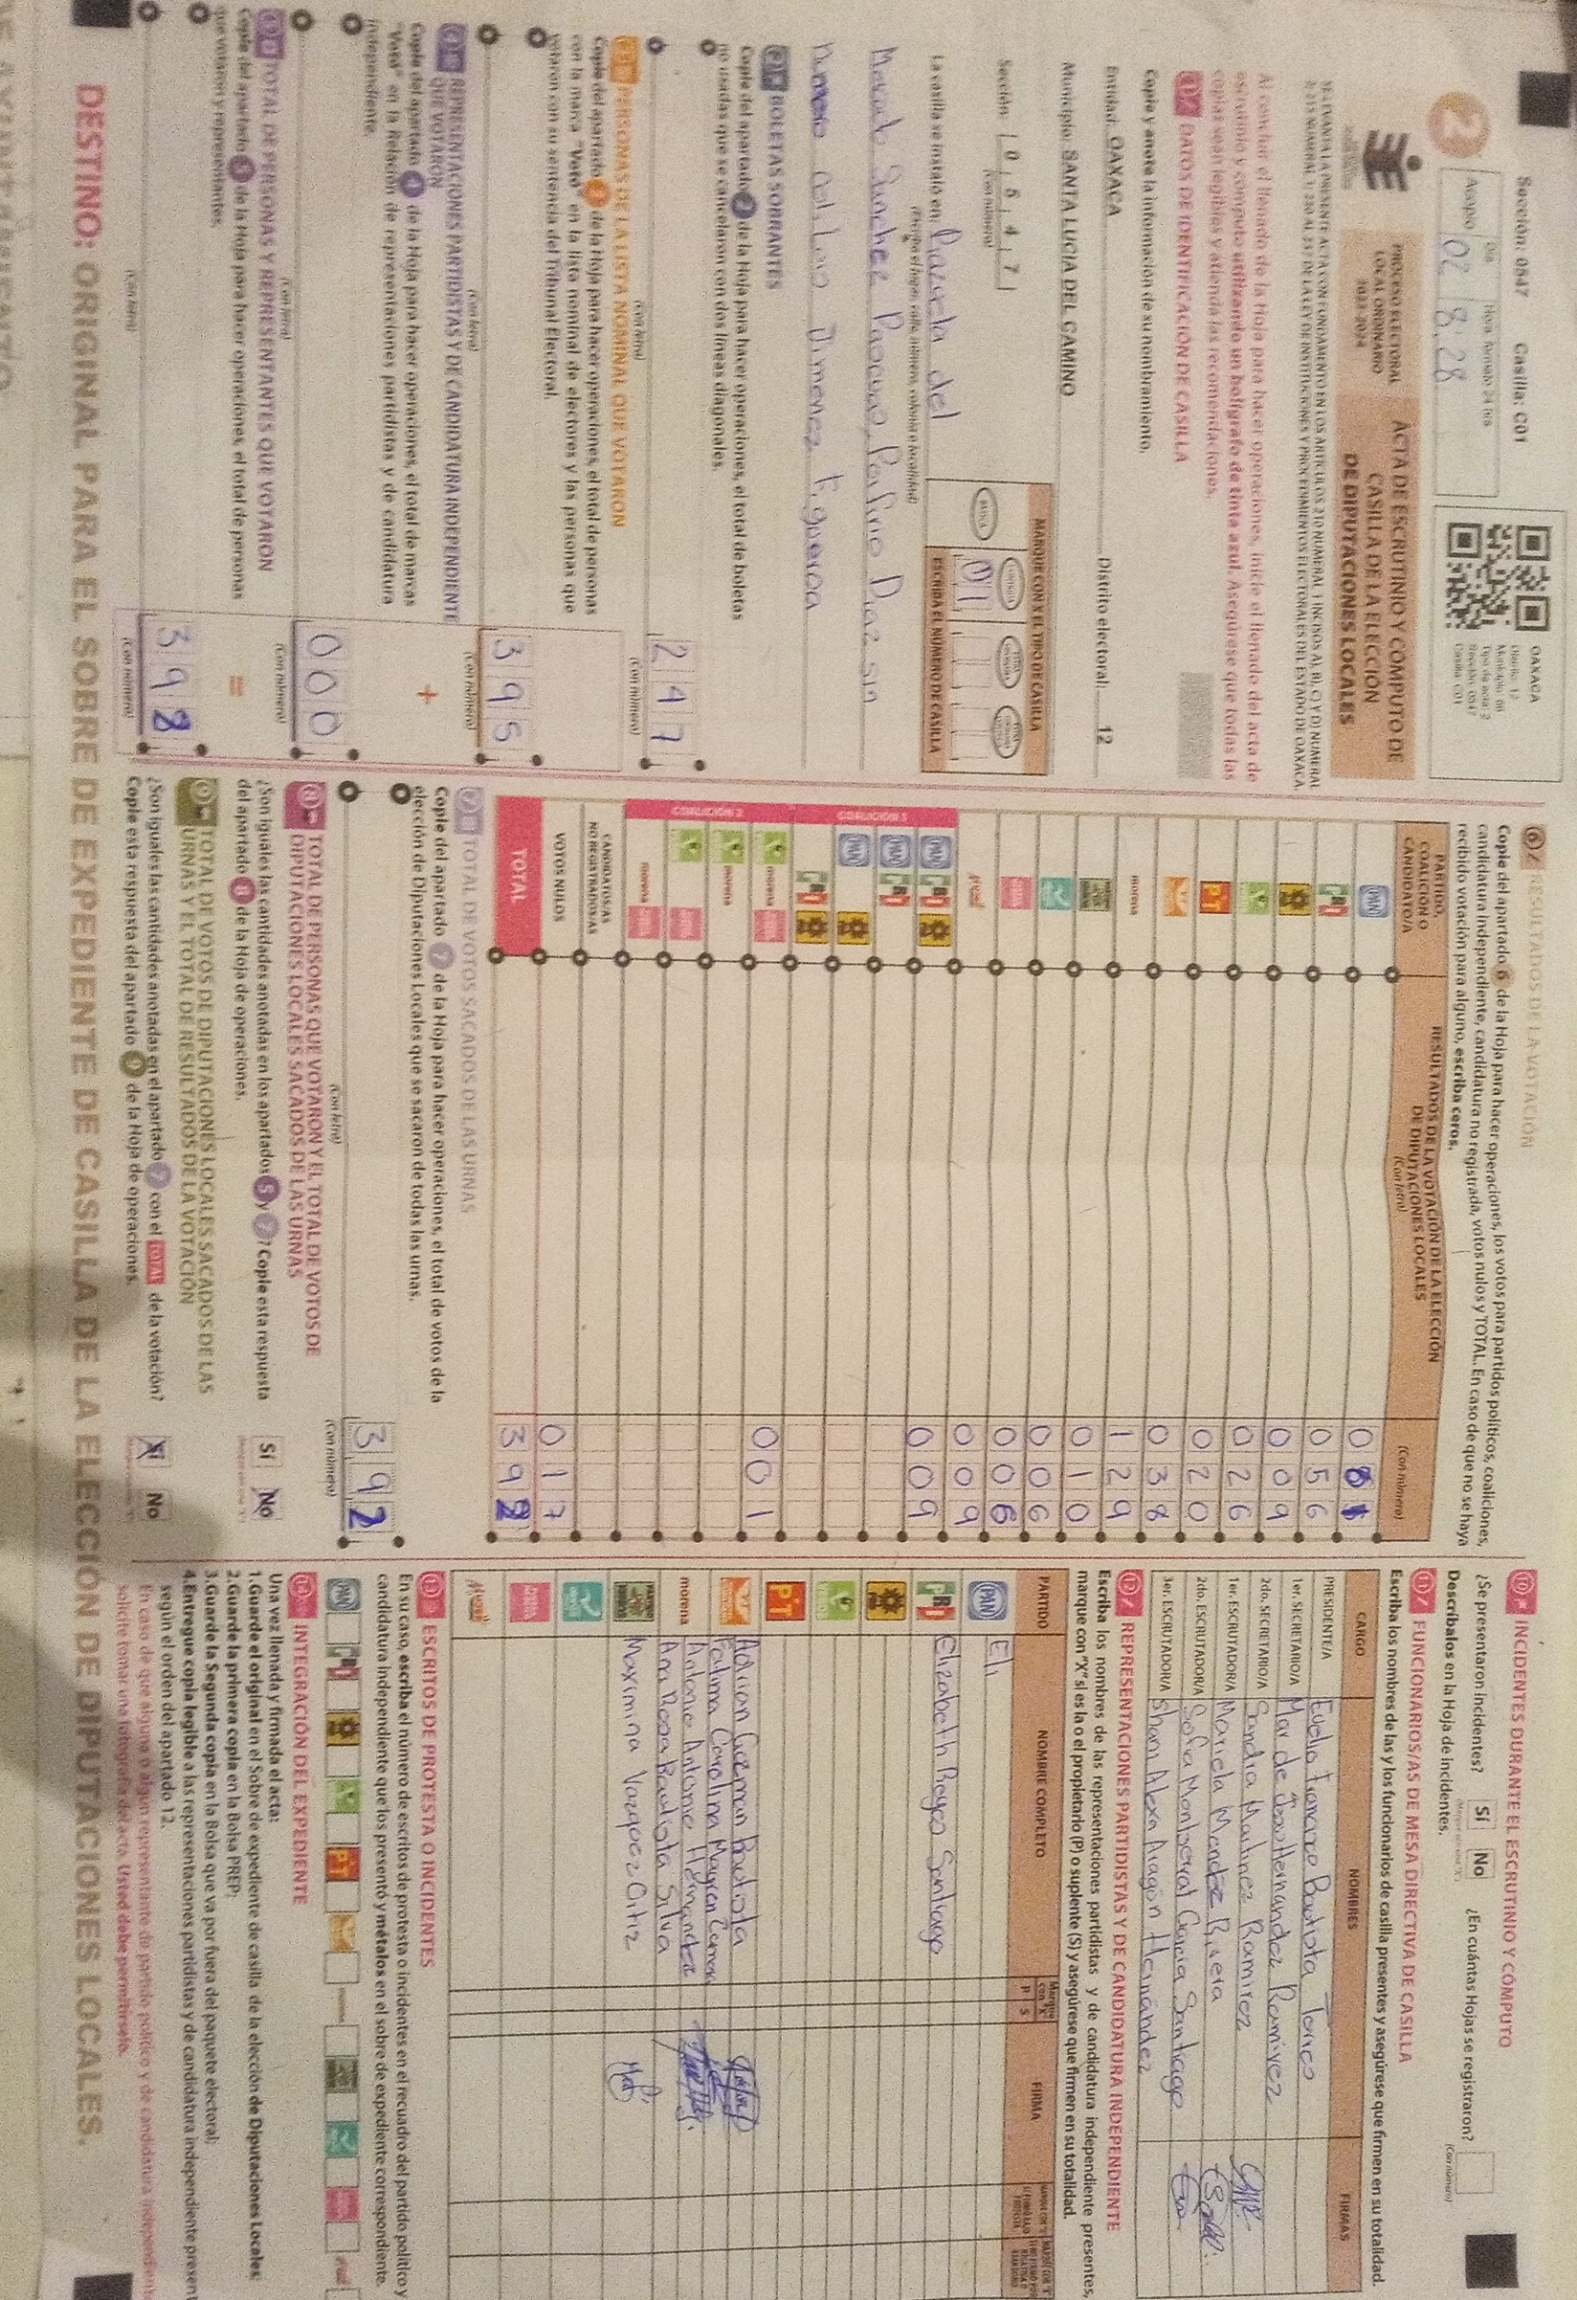 Sección: 0547 Casilla: C01
2
Acopio
Día
Hora, formato 24 hrs
02 8:28
OAXACA
Distrito: 12
Tipo de acta: 2
Sección: 0547
Casilla: C01
PROCESO ELECTORAL
LOCAL ORDINARIO
2023-2024
ACTA DE ESCRUTINIO Y CÓMPUTO DE
CASILLA DE LA ELECCIÓN
DE DIPUTACIONES LOCALES
Al concluir el llenado de la Hoja para hacer operaciones, inicie el llenado del acta de
escrutinio y cómputo utilizando un bolígrafo de tinta azul. Asegúrese que todas las
copias sean legibles y atienda las recomendaciones.
1 DATOS DE IDENTIFICACIÓN DE CASILLA
Copie y anote la información de su nombramiento.
Entidad: OAXACA Distrito electoral: 12
Municipio: SANTA LUCIA DEL CAMINO
Sección: 0 5 4 7
(Con número)
MARQUE CON X EL TIPO DE CASILLA
BÁSICA
01
ESCRIBA EL NÚMERO DE CASILLA
La casilla se instaló en: Plazuela del
(Escriba el lugar, calle, número, colonia o localidad)
Mercado Sanchez Pascuas, Porfirio Diaz sin
numero
Jimenez Figueroa
2 BOLETAS SOBRANTES
Copie del apartado 2 de la Hoja para hacer operaciones, el total de boletas
no usadas que se cancelaron con dos líneas diagonales.
247
(Con letra) (Con número)
3 PERSONAS DE LA LISTA NOMINAL QUE VOTARON
Copie del apartado 3 de la Hoja para hacer operaciones, el total de personas
con la marca "Votó" en la lista nominal de electores y las personas que
votaron con su sentencia del Tribunal Electoral.
395
(Con letra) (Con número)
4 REPRESENTACIONES PARTIDISTAS Y DE CANDIDATURA INDEPENDIENTE
QUE VOTARON
Copie del apartado 4 de la Hoja para hacer operaciones, el total de marcas
"Votó" en la Relación de representaciones partidistas y de candidatura
independiente.
+
000
(Con letra) (Con número)
5 TOTAL DE PERSONAS Y REPRESENTANTES QUE VOTARON
Copie del apartado 5 de la Hoja para hacer operaciones, el total de personas
que votaron y representantes.
=
398
(Con letra) (Con número)
6 RESULTADOS DE LA VOTACIÓN
Copie del apartado 6 de la Hoja para hacer operaciones, los votos para partidos políticos, coaliciones,
candidatura independiente, candidatura no registrada, votos nulos y TOTAL. En caso de que no se haya
recibido votación para alguno, escriba ceros.
PARTIDO,
COALICIÓN O
CANDIDATO/A
RESULTADOS DE LA VOTACIÓN DE LA ELECCIÓN
DE DIPUTACIONES LOCALES
(Con letra)
(Con número)
PAN
PRI 056
PRD 009
026
PT 020
038
morena 129
010
006
006
009
COALICIÓN 1
PAN PRI PRD 009
PAN PRI
PAN PRD
PRI PRD
COALICIÓN 2
morena 001
morena
morena
CANDIDATOS/AS
NO REGISTRADOS/AS
VOTOS NULOS 017
TOTAL 392
7 TOTAL DE VOTOS SACADOS DE LAS URNAS
Copie del apartado 7 de la Hoja para hacer operaciones, el total de votos de la
elección de Diputaciones Locales que se sacaron de todas las urnas.
392
(Con letra) (Con número)
8 TOTAL DE PERSONAS QUE VOTARON Y EL TOTAL DE VOTOS DE
DIPUTACIONES LOCALES SACADOS DE LAS URNAS
¿Son iguales las cantidades anotadas en los apartados 5 y 7? Copie esta respuesta
del apartado 8 de la Hoja de operaciones.
Sí No
9 TOTAL DE VOTOS DE DIPUTACIONES LOCALES SACADOS DE LAS
URNAS Y EL TOTAL DE RESULTADOS DE LA VOTACIÓN
¿Son iguales las cantidades anotadas en el apartado 7 con el TOTAL de la votación?
Copie esta respuesta del apartado 9 de la Hoja de operaciones.
Sí No
10 INCIDENTES DURANTE EL ESCRUTINIO Y CÓMPUTO
¿Se presentaron incidentes? Sí No ¿En cuántas Hojas se registraron?
(Con número)
Descríbalos en la Hoja de incidentes.
11 FUNCIONARIOS/AS DE MESA DIRECTIVA DE CASILLA
Escriba los nombres de las y los funcionarios de casilla presentes y asegúrese que firmen en su totalidad.
CARGO NOMBRES FIRMAS
PRESIDENTE/A Evelio Francisco Bautista Torres
1er. SECRETARIO/A Mar de Jesus Hernandez Ramirez
2do. SECRETARIO/A Sandra Martinez Ramirez
1er. ESCRUTADOR/A Mariela Mendez Rivera
2do. ESCRUTADOR/A Sofia Montserrat Garcia Santiago
3er. ESCRUTADOR/A Sharn Alexa Aragón Hernández
12 REPRESENTACIONES PARTIDISTAS Y DE CANDIDATURA INDEPENDIENTE
Escriba los nombres de las representaciones partidistas y de candidatura independiente presentes,
marque con "X" si es la o el propietario (P) o suplente (S) y asegúrese que firmen en su totalidad.
PARTIDO NOMBRE COMPLETO P S FIRMA
PAN Eli
PRI Elizabeth Reyes Santiago
PRD
PT
Adrian Guzman Bautista
Fatima Carolina Mayren
Antonio Antonio Hernandez
morena Ana Rosa Bautista Silva
Maximina Vazquez Ortiz
13 ESCRITOS DE PROTESTA O INCIDENTES
En su caso, escriba el número de escritos de protesta o incidentes en el recuadro del partido político y
candidatura independiente que los presentó y métalos en el sobre de expediente correspondiente.
PAN PRI PRD PT morena
14 INTEGRACIÓN DEL EXPEDIENTE
Una vez llenada y firmada el acta:
1.Guarde el original en el Sobre de expediente de casilla de la elección de Diputaciones Locales;
2.Guarde la primera copia en la Bolsa PREP;
3.Guarde la Segunda copia en la Bolsa que va por fuera del paquete electoral;
4.Entregue copia legible a las representaciones partidistas y de candidatura independiente present
según el orden del apartado 12.
En caso de que alguna o algún representante de partido político y de candidatura independiente
solicite tomar una fotografía del acta. Usted debe permitírselo.
DESTINO: ORIGINAL PARA EL SOBRE DE EXPEDIENTE DE CASILLA DE LA ELECCIÓN DE DIPUTACIONES LOCALES.